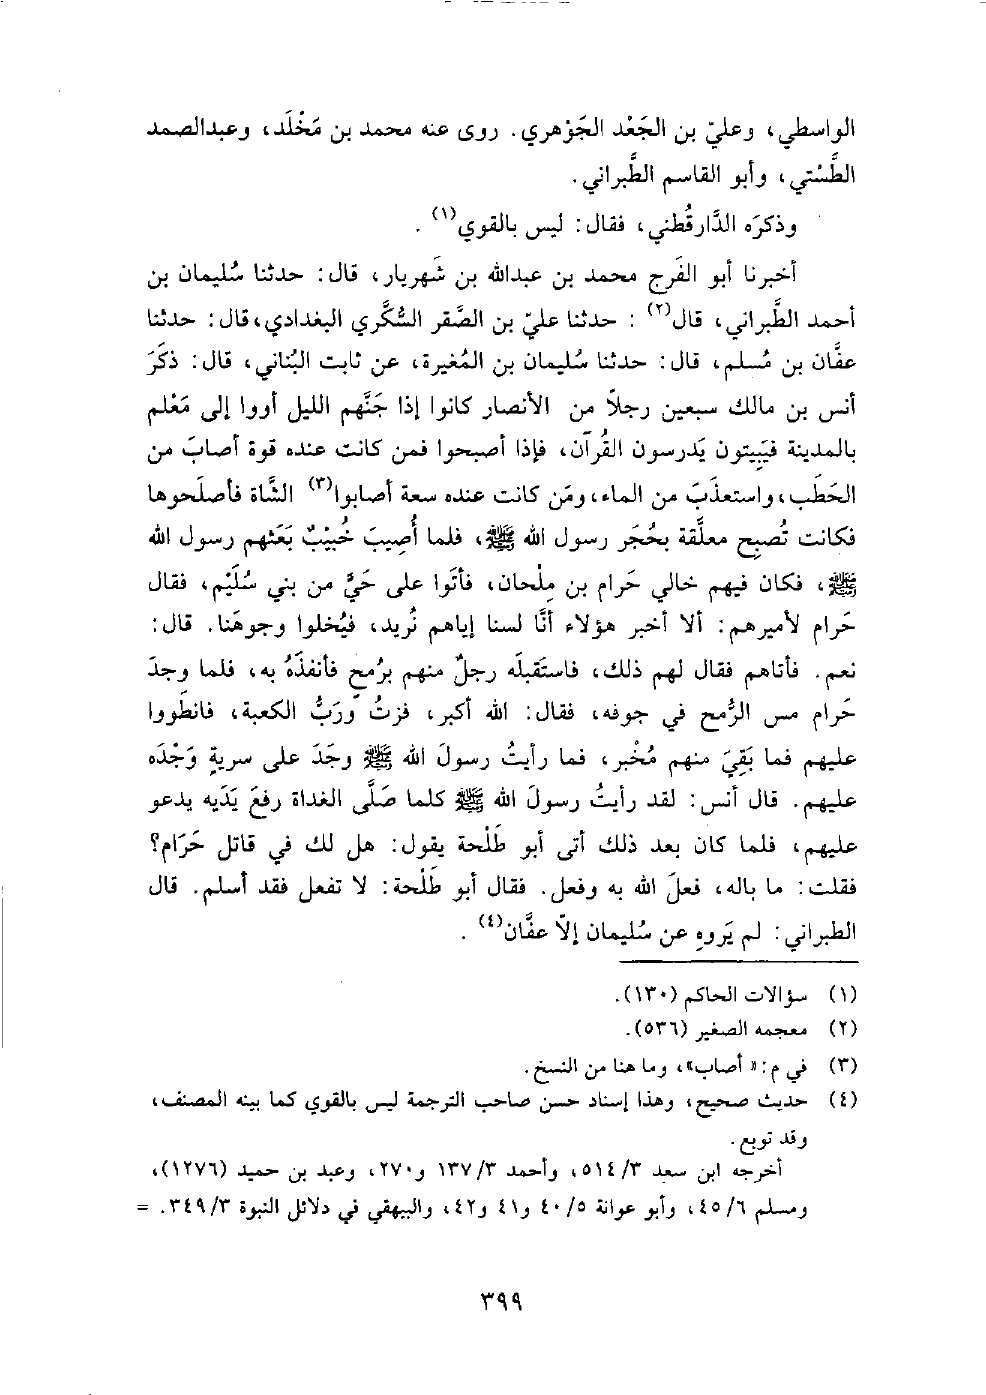 الواسطي، وعليّ بن الجَعْد الجَوْهري. روى عنه محمد بن مَخْلَد، وعبدالصمد
الطَّسْتي، وأبو القاسم الطَّبراني.
وذكرَه الدَّارقُطني، فقال: ليس بالقوي(١).
أخبرنا أبو الفَرج محمد بن عبدالله بن شَهريار، قال: حدثنا سُليمان بن
أحمد الطَّبراني، قال(٢): حدثنا عليّ بن الصَّقر السُّكَّري البغدادي، قال: حدثنا
عفَّان بن مُسلم، قال: حدثنا سُليمان بن المُغيرة، عن ثابت البُناني، قال: ذكَرَ
أنس بن مالك سبعين رجلاً من الأنصار كانوا إذا جَنَّهم الليل أووا إلى مَعْلم
بالمدينة فيَبِيتون يَدرسون القُرآن، فإذا أصبحوا فمن كانت عنده قوة أصابَ من
الحَطَب، واستعذَبَ من الماء، ومَن كانت عنده سعة أصابوا(٣) الشَّاة فأصلَحوها
فكانت تُصبِح معلَّقة بحُجَر رسول الله ﷺ، فلما أُصِيبَ خُبيْبٌ بَعَثهم رسول الله
ﷺ، فكان فيهم خالي حَرام بن مِلْحان، فأتَوا على حَيٍّ من بني سُلَيْم، فقال
حَرام لأميرهم: ألا أخبر هؤلاء أنَّا لسنا إياهم نُريد، فيُخلوا وجوهَنا. قال:
نعم. فأتاهم فقال لهم ذلك، فاستَقبلَه رجلٌ منهم برُمح فأنفذَهُ به، فلما وجدَ
حَرام مس الرُّمح في جوفه، فقال: الله أكبر، فزتُ ورَبُّ الكعبة، فانطَووا
عليهم فما بَقِيَ منهم مُخْبر، فما رأيتُ رسولَ الله ﷺ وجَدَ على سريةٍ وَجْدَه
عليهم. قال أنس: لقد رأيتُ رسولَ الله ﷺ كلما صَلَّى الغداة رفعَ يَدَيه يدعو
عليهم، فلما كان بعد ذلك أتى أبو طَلْحة يقول: هل لك في قاتل حَرَام؟
فقلت: ما باله، فعلَ الله به وفعل. فقال أبو طَلْحة: لا تفعل فقد أسلم. قال
الطبراني: لم يَروِه عن سُليمان إلاّ عفَّان(٤).
(١) سؤالات الحاكم (١٣٠).
(٢) معجمه الصغير (٥٣٦).
(٣) في م: «أصاب»، وما هنا من النسخ.
(٤) حديث صحيح، وهذا إسناد حسن صاحب الترجمة ليس بالقوي كما بينه المصنف،
وقد توبع.
أخرجه ابن سعد ٣/ ٥١٤، وأحمد ٣/ ١٣٧ و٢٧٠، وعبد بن حميد (١٢٧٦)،
ومسلم ٦/ ٤٥، وأبو عوانة ٥/ ٤٠ و٤١ و٤٢، والبيهقي في دلائل النبوة ٣/ ٣٤٩. =
٣٩٩